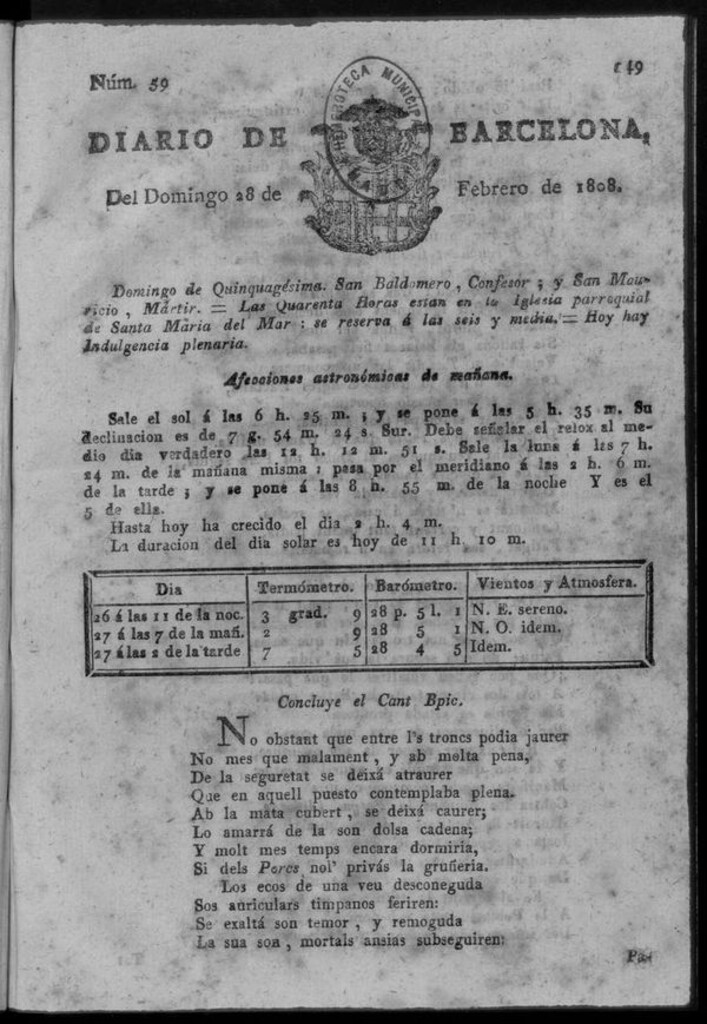 Núm. 59
149
HEMEROTECA MUNICIPAL
DIARIO DE BARCELONA,
Del Domingo 28 de Febrero de 1808.
Domingo de Quinquagésima. San Baldomero, Confesor; y San Mau-
ricio, Mártir. = Las Quarenta Horas estan en la Iglesia parroquial
de Santa María del Mar: se reserva á las seis y media. = Hoy hay
Indulgencia plenaria.
Afecciones astronómicas de mañana.
Sale el sol á las 6 h. 25 m.; y se pone á las 5 h. 35 m. Su
declinacion es de 7 g. 54 m. 24 s. Sur. Debe señalar el relox al me-
dio dia verdadero las 12 h. 12 m. 51 s. Sale la luna á las 7 h.
24 m. de la mañana misma: pasa por el meridiano á las 2 h. 6 m.
de la tarde; y se pone á las 8 h. 55 m. de la noche Y es el
5 de ella.
Hasta hoy ha crecido el dia 2 h. 4 m.
La duracion del dia solar es hoy de 11 h 10 m.
Dia Termómetro. Barómetro. Vientos y Atmosfera.
26 á las 11 de la noc. 3 grad. 9 28 p. 5 l. 1 N. E. sereno.
27 á las 7 de la mañ. 2 9 28 5 1 N. O. idem.
27 á las 2 de la tarde 7 5 28 4 5 Idem.
Concluye el Cant Epic.
No obstant que entre l's troncs podia jaurer
No mes que malament, y ab molta pena,
De la seguretat se deixá atraurer
Que en aquell puesto contemplaba plena.
Ab la mata cubert, se deixá caurer;
Lo amarrá de la son dolsa cadena;
Y molt mes temps encara dormiria,
Si dels Porcs nol' privás la gruñeria.
Los ecos de una veu desconeguda
Sos auriculars timpanos feriren:
Se exaltá son temor, y remoguda
La sua son, mortals ansias subseguiren: